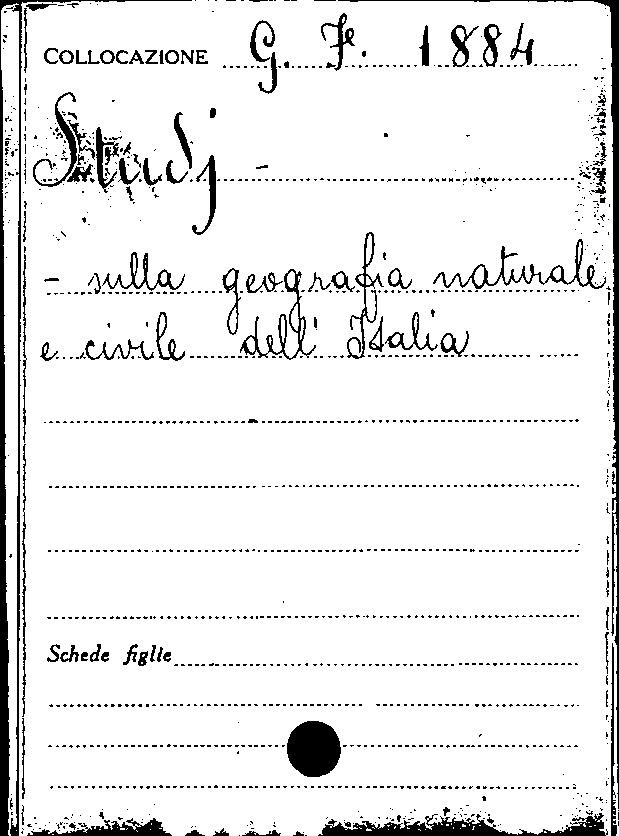 COLLOCAZIONE G. F. 1884
Studj -
- sulla geografia naturale
e civile dell' Italia
Schede figlie